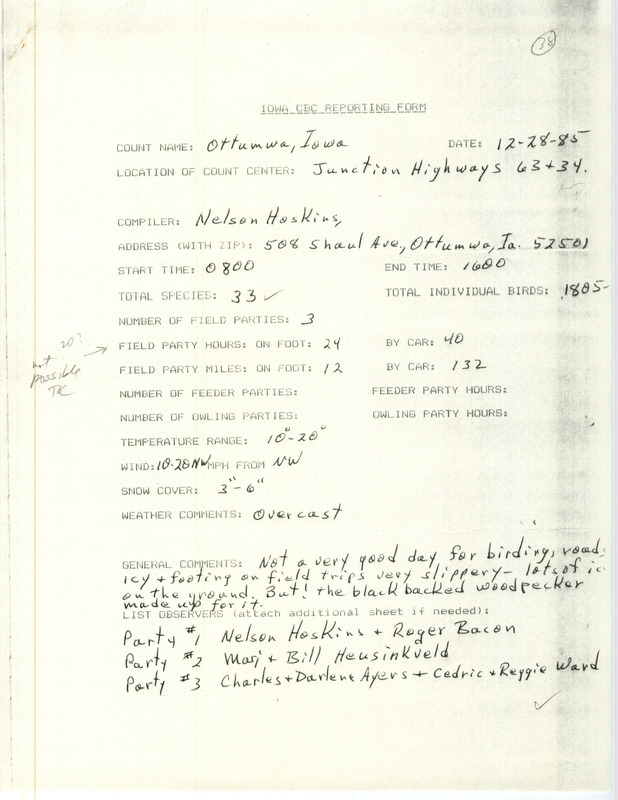 38
IOWA CBC REPORTING FORM
COUNT NAME: Ottumwa, Iowa DATE: 12-28-85
LOCATION OF COUNT CENTER: Junction Highways 63+34.
COMPILER: Nelson Hoskins,
ADDRESS (WITH ZIP): 508 Shaul Ave, Ottumwa, Ia. 52501
START TIME: 0800 END TIME: 1600
TOTAL SPECIES: 33 ✓ TOTAL INDIVIDUAL BIRDS: 1805-
NUMBER OF FIELD PARTIES: 3
20? not possible TK → FIELD PARTY HOURS: ON FOOT: 24 BY CAR: 40
FIELD PARTY MILES: ON FOOT: 12 BY CAR: 132
NUMBER OF FEEDER PARTIES: FEEDER PARTY HOURS:
NUMBER OF OWLING PARTIES: OWLING PARTY HOURS:
TEMPERATURE RANGE: 10°-20°
WIND: 10-20NW MPH FROM NW
SNOW COVER: 3"-6"
WEATHER COMMENTS: Overcast
GENERAL COMMENTS: Not a very good day for birding, road
icy + footing on field trips very slippery- lots of ic
on the ground. But! the black backed woodpecker
made up for it.
LIST OBSERVERS (attach additional sheet if needed):
Party #1 Nelson Hoskins + Roger Bacon
Party #2 Marj + Bill Heusinkveld
Party #3 Charles + Darlene Ayers + Cedric + Reggie Ward
✓